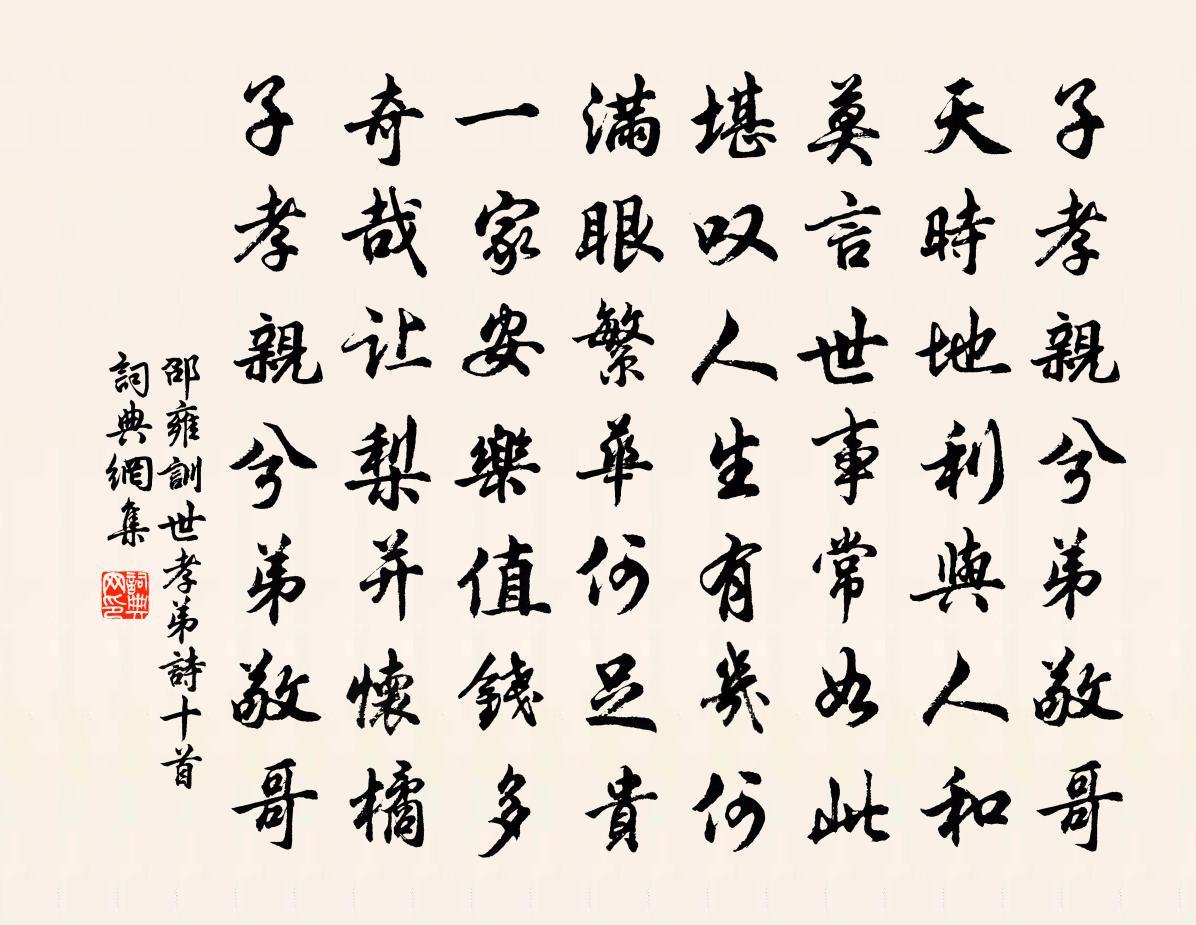 子孝親兮弟敬哥
天時地利與人和
莫言世事常如此
堪叹人生有幾何
滿眼繁華何足貴
一家安樂值錢多
奇哉让梨并懷橘
子孝親兮弟敬哥
邵雍訓世孝弟詩十首
詞典網集
詞典网印